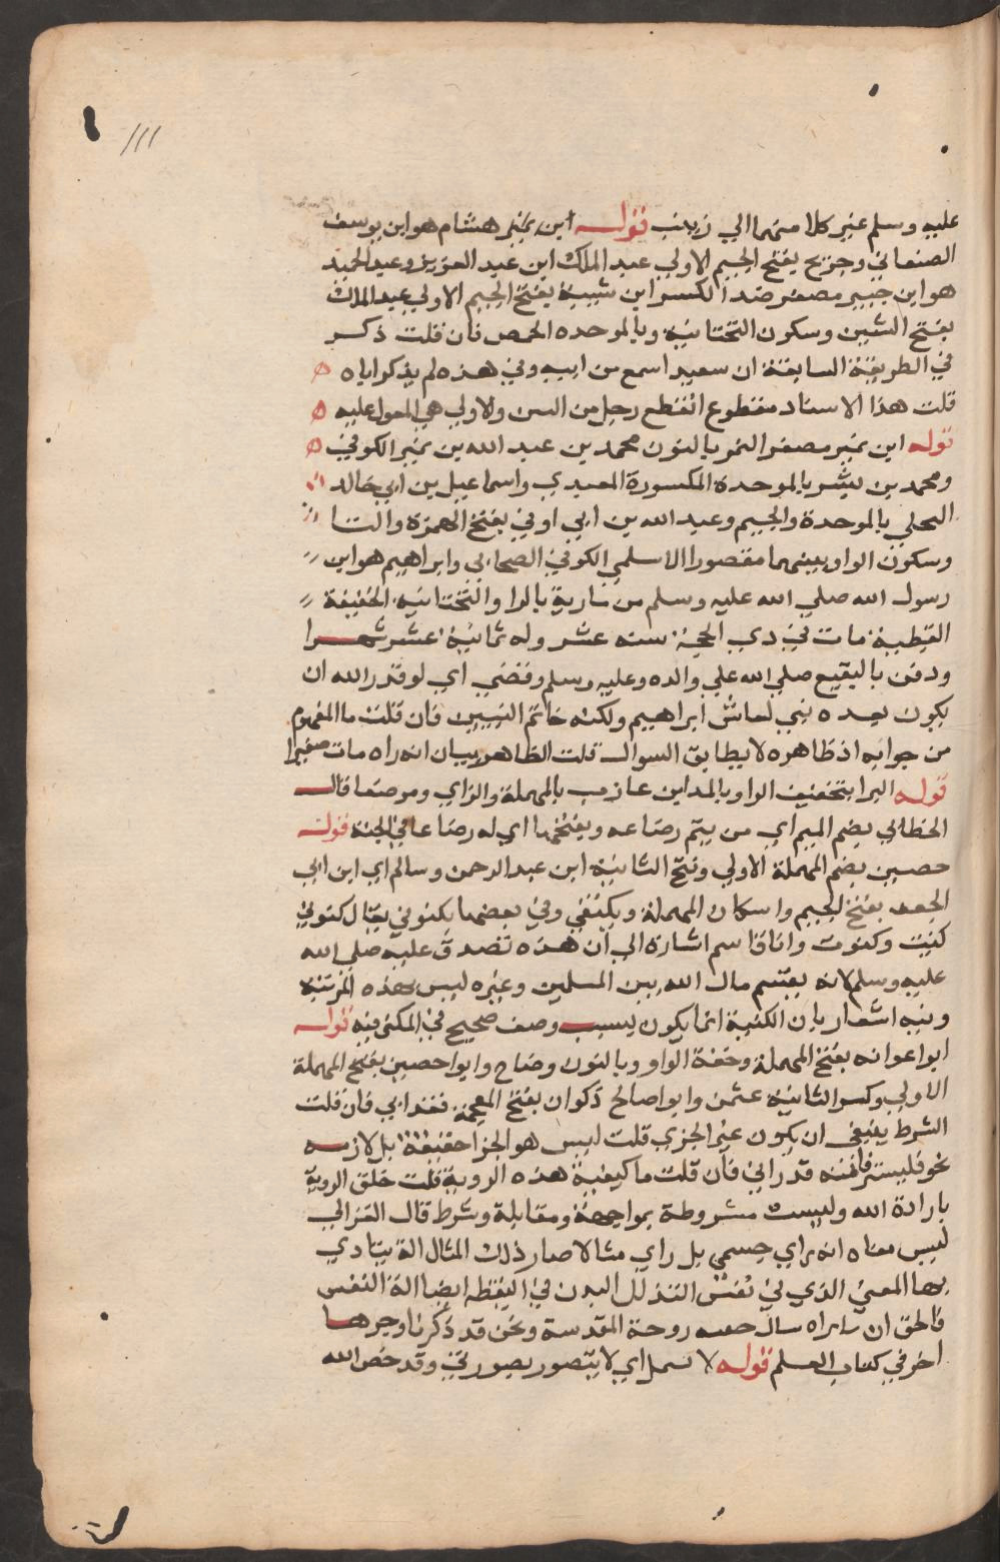 111
عليه وسلم غير كلا منهما الي زينب قوله ابن نمير هشام هو ابن يوسف
الصنعاني وجريج بفتح الجيم الاولي عبد الملك ابن عبد العزيز وعبد الحميد
هو ابن جبير مصغر ضد الكسر ابن شيبة بفتح الجيم الاولي عبد الملك
بفتح الشين وسكون التحتانية وبالموحده الحمص فان قلت ذكر
في الطريقة السابقة ان سعيد اسمع من ابيه وفي هذه لم يذكر اباه ه
قلت هذا الاسناد منقطع انقطع رجل من البين والاولي هي المعول عليه ه
قوله ابن نمير مصغر النمر بالنون محمد بن عبد الله بن نمير الكوفي ه
ومحمد بن بشر بالموحدة المكسورة العبدي واسماعيل بن ابي خالد
البجلي بالموحدة والجيم وعبد الله بن ابي اوفي بفتح الهمزة والتا
وسكون الواو بينهما مقصورا الاسلمي الكوفي الصحابي وابراهيم هو ابن
رسول الله صلي الله عليه وسلم من مارية بالرا والتحتانية الخفيفة
القبطية مات في ذي الحجة سنه عشر وله ثمانية عشر شهرا
ودفن بالبقيع صلي الله علي والده وعليه وسلم وقضي اي لو قدر الله ان
يكون بعده نبي لعاش ابراهيم ولكنه خاتم النبيين فان قلت ما المفهوم
من جوابه اذ ظاهره لا يطابق السوال قلت الظاهر بيان انه راه مات صغيرا
قوله البرا بتخفيف الرا وبالمد ابن عازب بالمهملة والزاي ومرضعا قال
الخطابي بضم الميم اي من يتم رضاعه وبفتحها اي له رضاعا في الجنة قوله
حصين بضم المهملة الاولي وفتح الثانية ابن عبد الرحمن وسالم اي ابن ابي
الجعد بفتح الجيم واسكان المهملة ويكنني وفي بعضها يكنوني يقال كنوني
كنيت وكنوت وانا قاسم اشارة الي ان هذه تصدق عليه صلي الله
عليه وسلم لانه يقسم مال الله بين المسلمين وغيره ليس بهذه المرتبة
وفيه اشعار بان الكنية انما يكون بسبب وصف صحيح في المكني فيه قوله
ابو اعوانه بفتح المهملة وخفة الواو وبالنون وضاح وابو احصين بفتح المهملة
الاولي وكسر الثانية عثمن وابو اصالح ذكوان بفتح المعجمة فقد ابي فان قلت
الشرط ينبغي ان يكون غير الجزي قلت ليس هو الجزا حقيقة بل لازمه
نحو فليستر فانه قد راني فان قلت ما كيفية هذه الروية قلت خلق الروية
بارادة الله وليست مشروطة بمواجهة ومقابلة وشرط قال الغزالي
ليس معناه انه راي جسمي بل راي مثالا صار ذلك المثال الة يتادي
بها المعني الذي في نفس التذلل البدن في اليقظه ايضا الة النفس
فالحق ان ما يراه مثال حقيقه روحة المقدسة ونحن قد ذكرنا وجوها
اخر في كتاب العلم قوله لا يتمثل اي لا يتصور بصورتي وقد خص الله